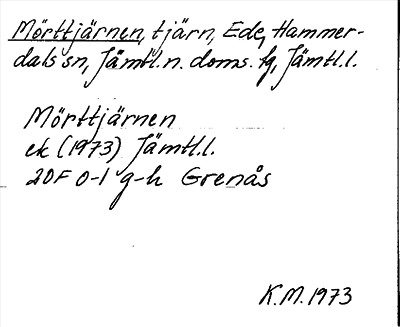 Mörttjärnen, tjärn, Ede, Hammer-
dals sn, Jämtl.n. doms. fg, Jämtl.l.
Mörttjärnen
ek (1973) Jämtl.l.
20F 0-1 g-h Grenås
K.M. 1973